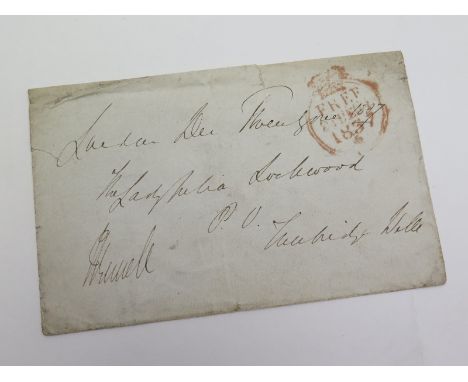 London Dec Twenty one 1837
The Lady Julia Lockwood
P. O.
Tunbridge Wells
FREE
1837